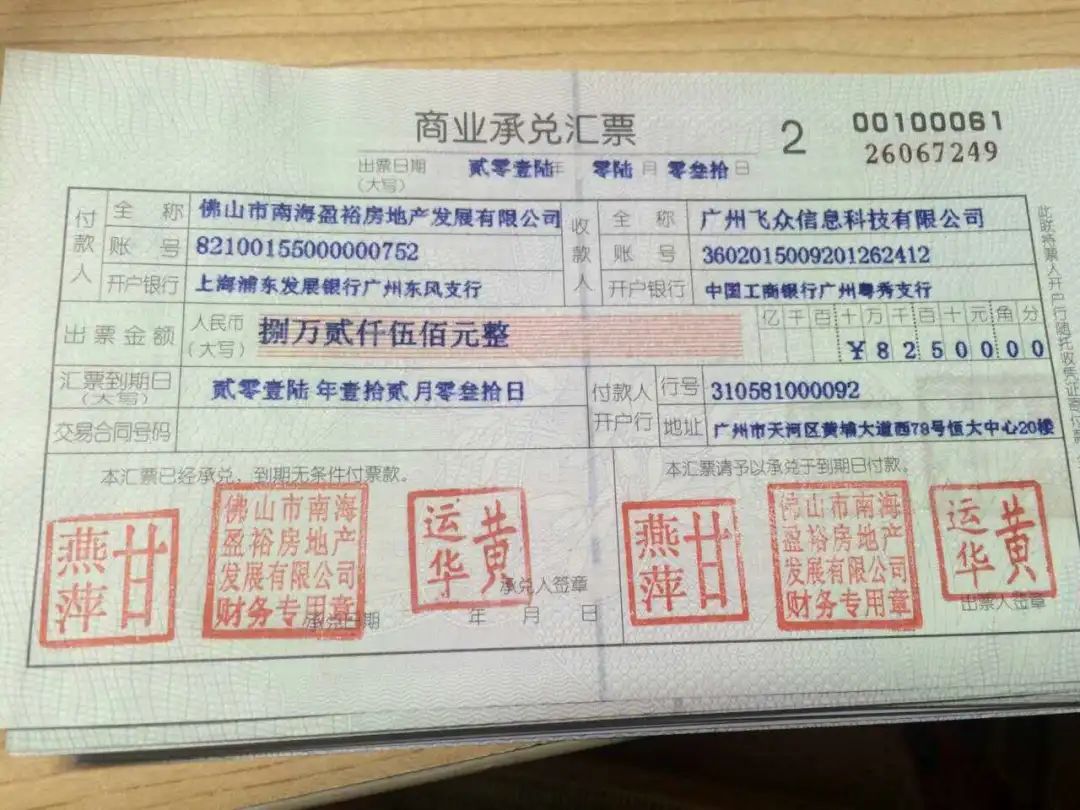 商业承兑汇票 2 00100061
26067249
出票日期 (大写) 贰零壹陆年 零陆月 零叁拾日
付款人 全称 佛山市南海盈裕房地产发展有限公司 收款人 全称 广州飞众信息科技有限公司
账号 82100155000000752 账号 3602015009201262412
开户银行 上海浦东发展银行广州东风支行 开户银行 中国工商银行广州粤秀支行
出票金额 人民币 (大写) 捌万贰仟伍佰元整 亿千百十万千百十元角分
¥8250000
汇票到期日 (大写) 贰零壹陆年壹拾贰月零叁拾日 付款人开户行 行号 310581000092
交易合同号码 地址 广州市天河区黄埔大道西78号恒大中心20楼
本汇票已经承兑，到期无条件付票款。 本汇票请予以承兑于到期日付款。
甘燕萍 佛山市南海盈裕房地产发展有限公司财务专用章 黄运华 甘燕萍 佛山市南海盈裕房地产发展有限公司财务专用章 黄运华
承兑人签章 出票人签章
承兑日期 年 月 日